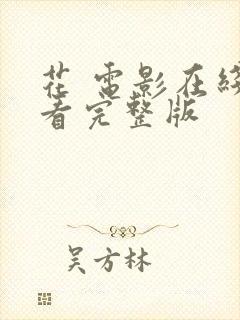 花 电影在线
看完整版
吴方林